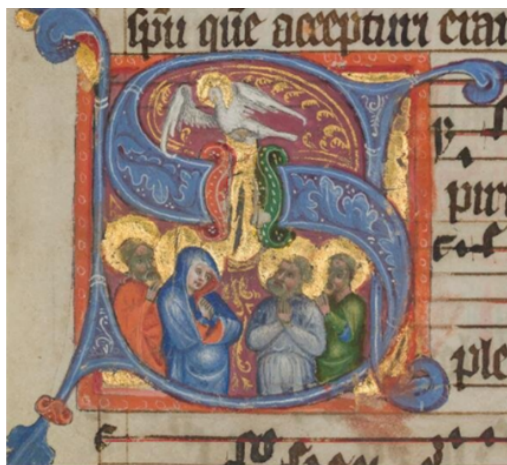 spū quē accepturi eran
S
piri
ple